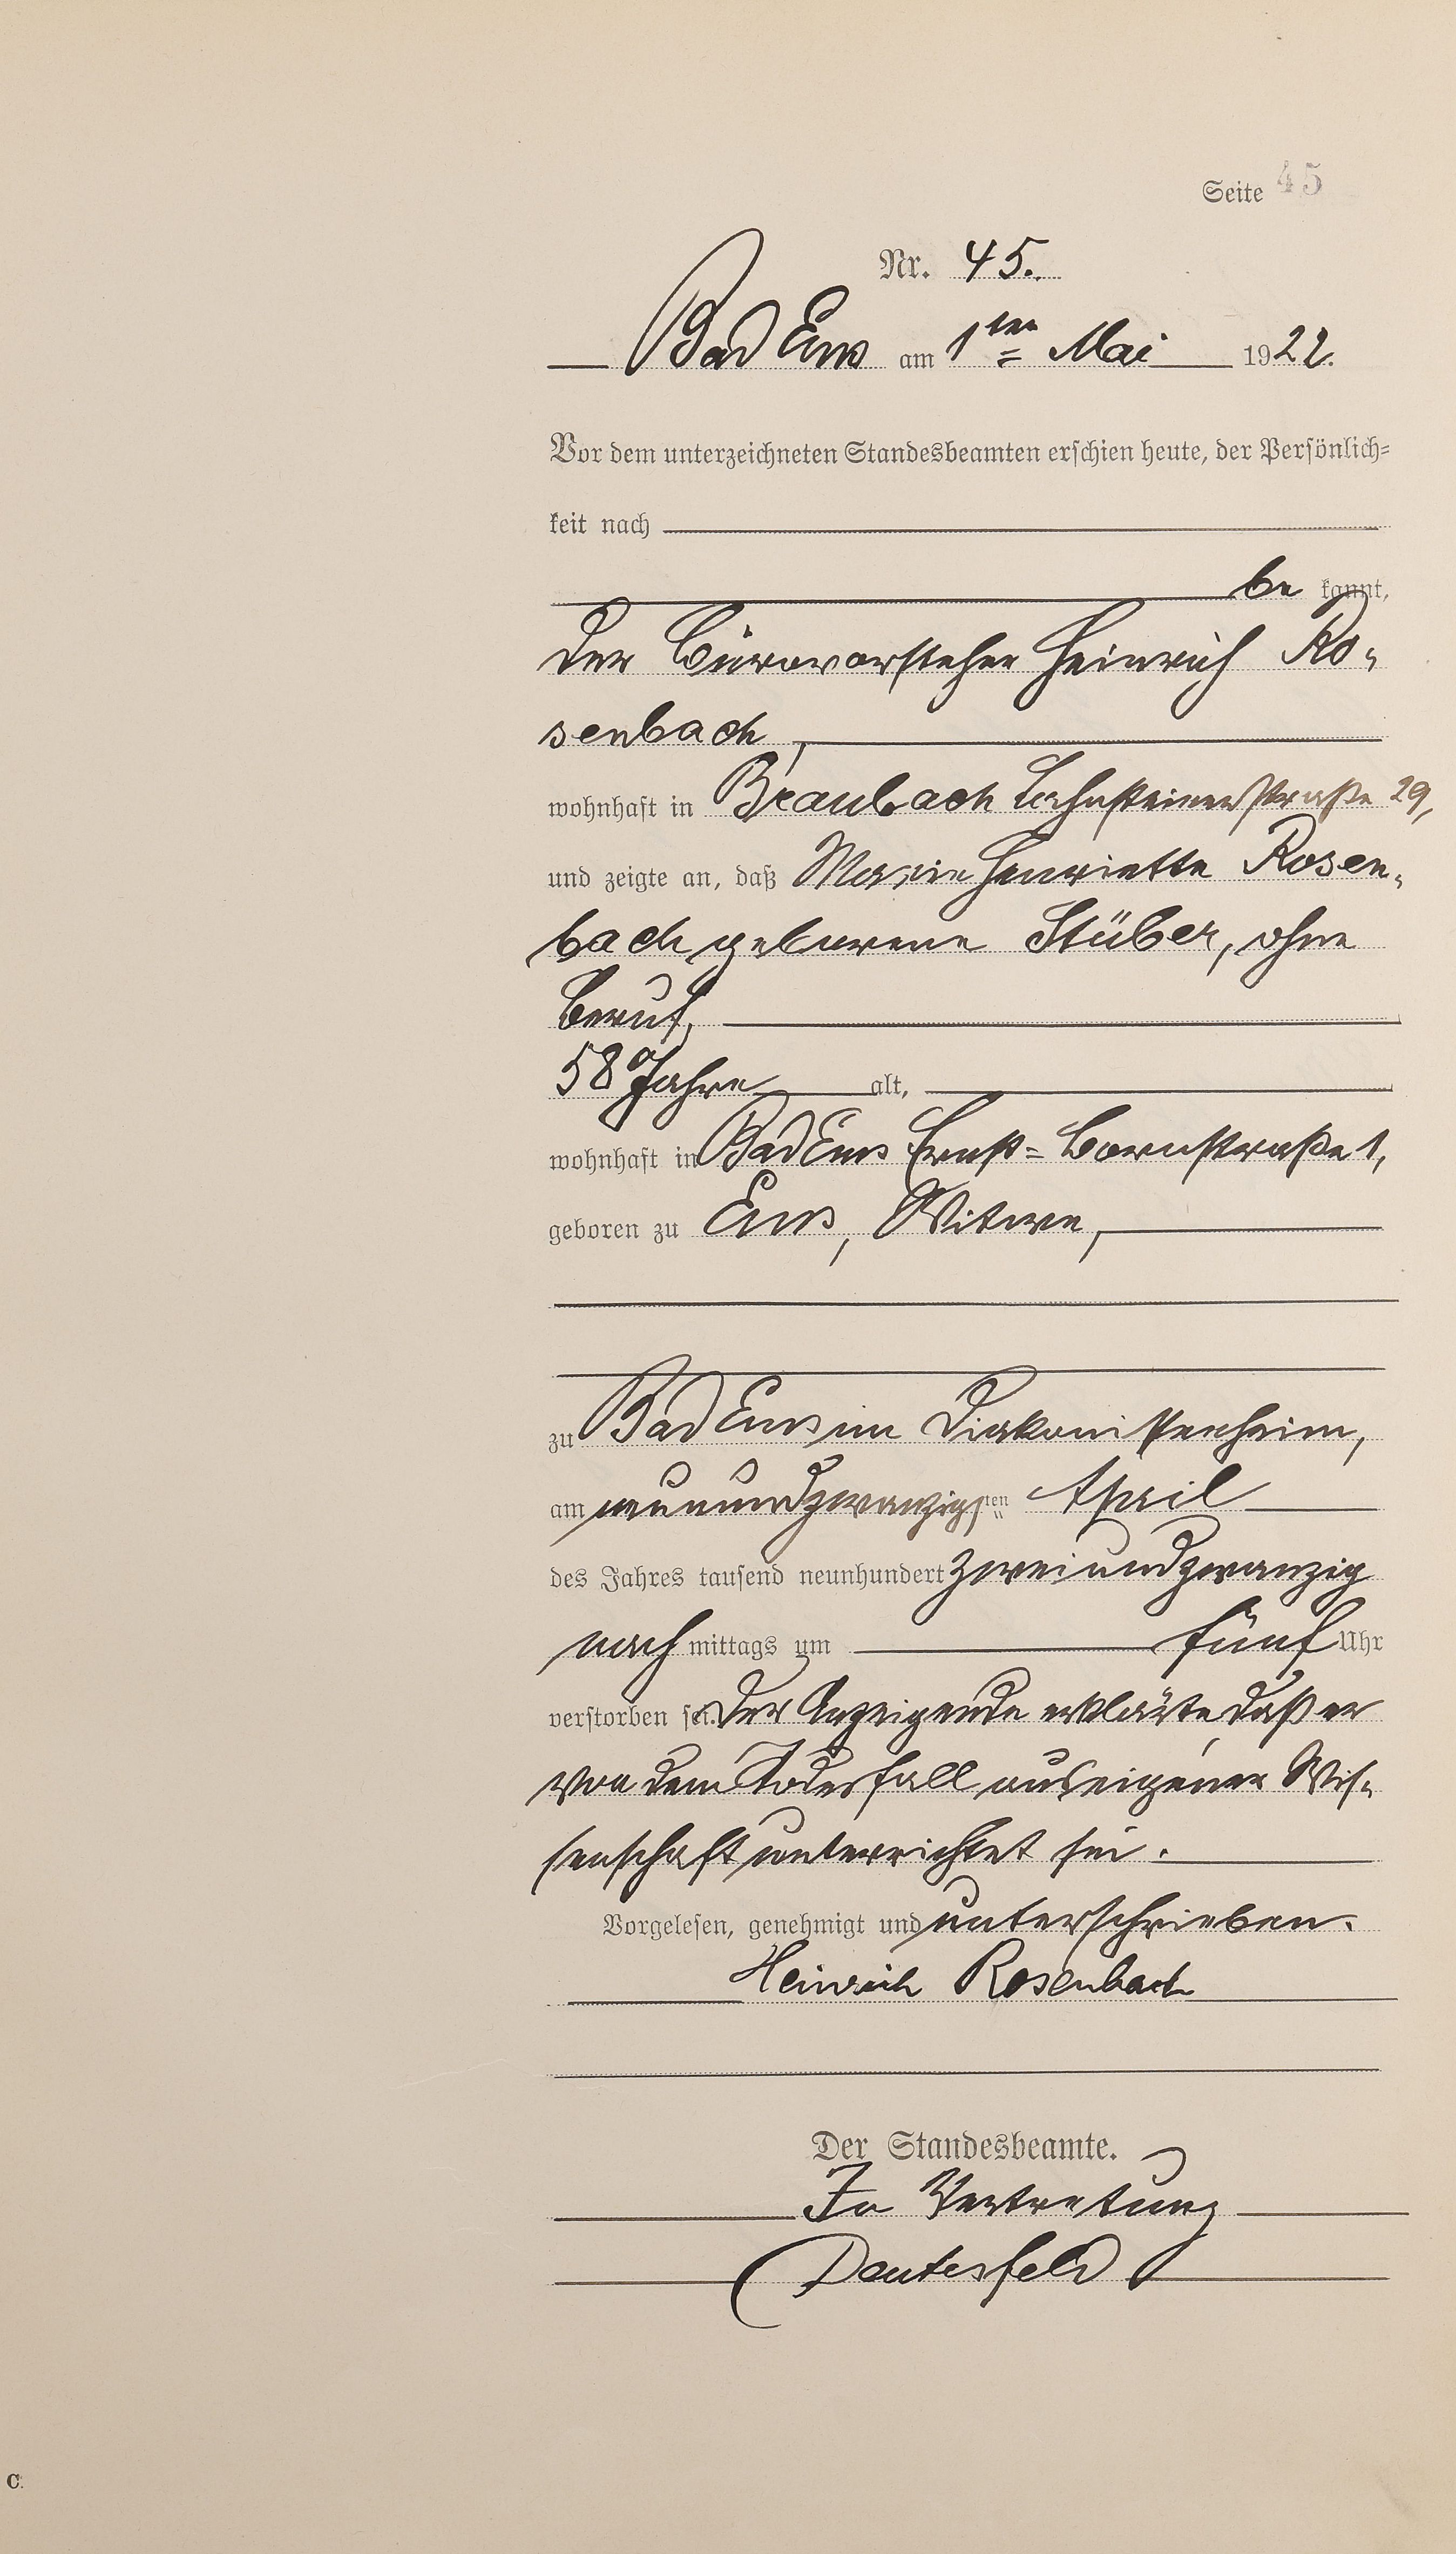 Seite 45
Nr. 45.
Bad Ems am 1ten Mai 1922.
Vor dem unterzeichneten Standesbeamten erschien heute, der Persönlich-
keit nach
be kannt,
der Bürovorsteher Heinrich Ro-
senbach,
wohnhaft in Braubach Lahnsteinerstraße 29,
und zeigte an, daß Marie Henriette Rosen-
bach geborene Stüber, ohne
Beruf,
58 Jahre alt,
wohnhaft in Bad Ems Ernst-Bornstraße 1,
geboren zu Ems, Witwe,
zu Bad Ems im Diakonissenheim,
am neunundzwanzigsten April
des Jahres tausend neunhundert zweiundzwanzig
nach mittags um fünf Uhr
verstorben sei. Der Anzeigende erklärte, daß er
von dem Todesfall aus eigener Wis-
senschaft unterrichtet sei.
Vorgelesen, genehmigt und unterschrieben.
Heinrich Rosenbach
Der Standesbeamte.
In Vertretung
C.